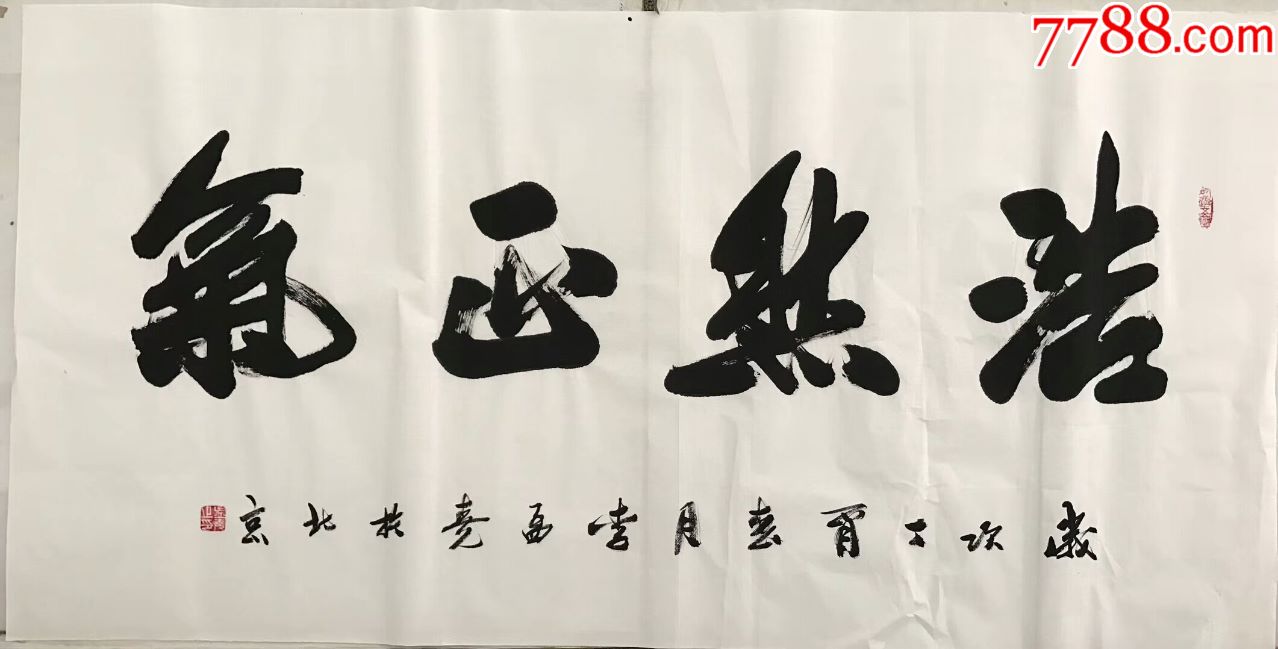 7788.com
浩然正氣
歲次丁酉春月李堯於北京